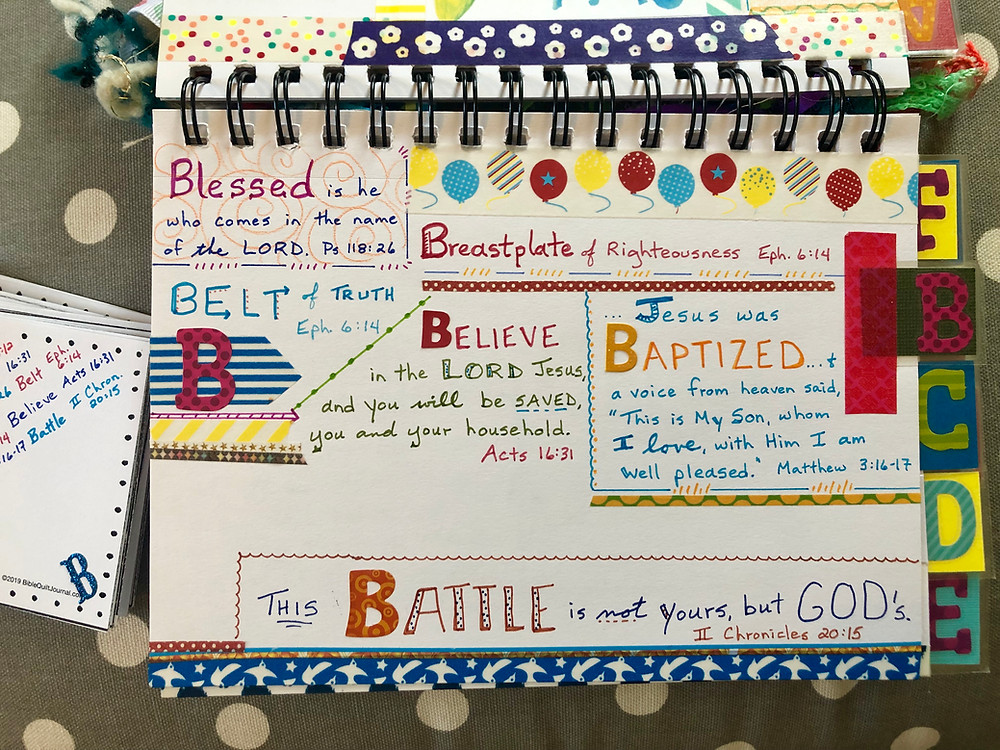 Blessed is he
who comes in the name
of the LORD. Ps 118:26
Breastplate of Righteousness Eph. 6:14
BELT of TRUTH
Eph. 6:14
B
BELIEVE
in the LORD Jesus,
and you will be SAVED,
you and your household.
Acts 16:31
... Jesus was
BAPTIZED...&
a voice from heaven said,
"This is My Son, whom
I love, with Him I am
well pleased." Matthew 3:16-17
THIS BATTLE is not yours, but GOD's.
II Chronicles 20:15
B
C
D
E
:12
16:31
Belt Eph. 6:14
Believe Acts 16:31
Battle II Chron. 20:15
16-17
©2019 BibleQuiltJournal.co
B